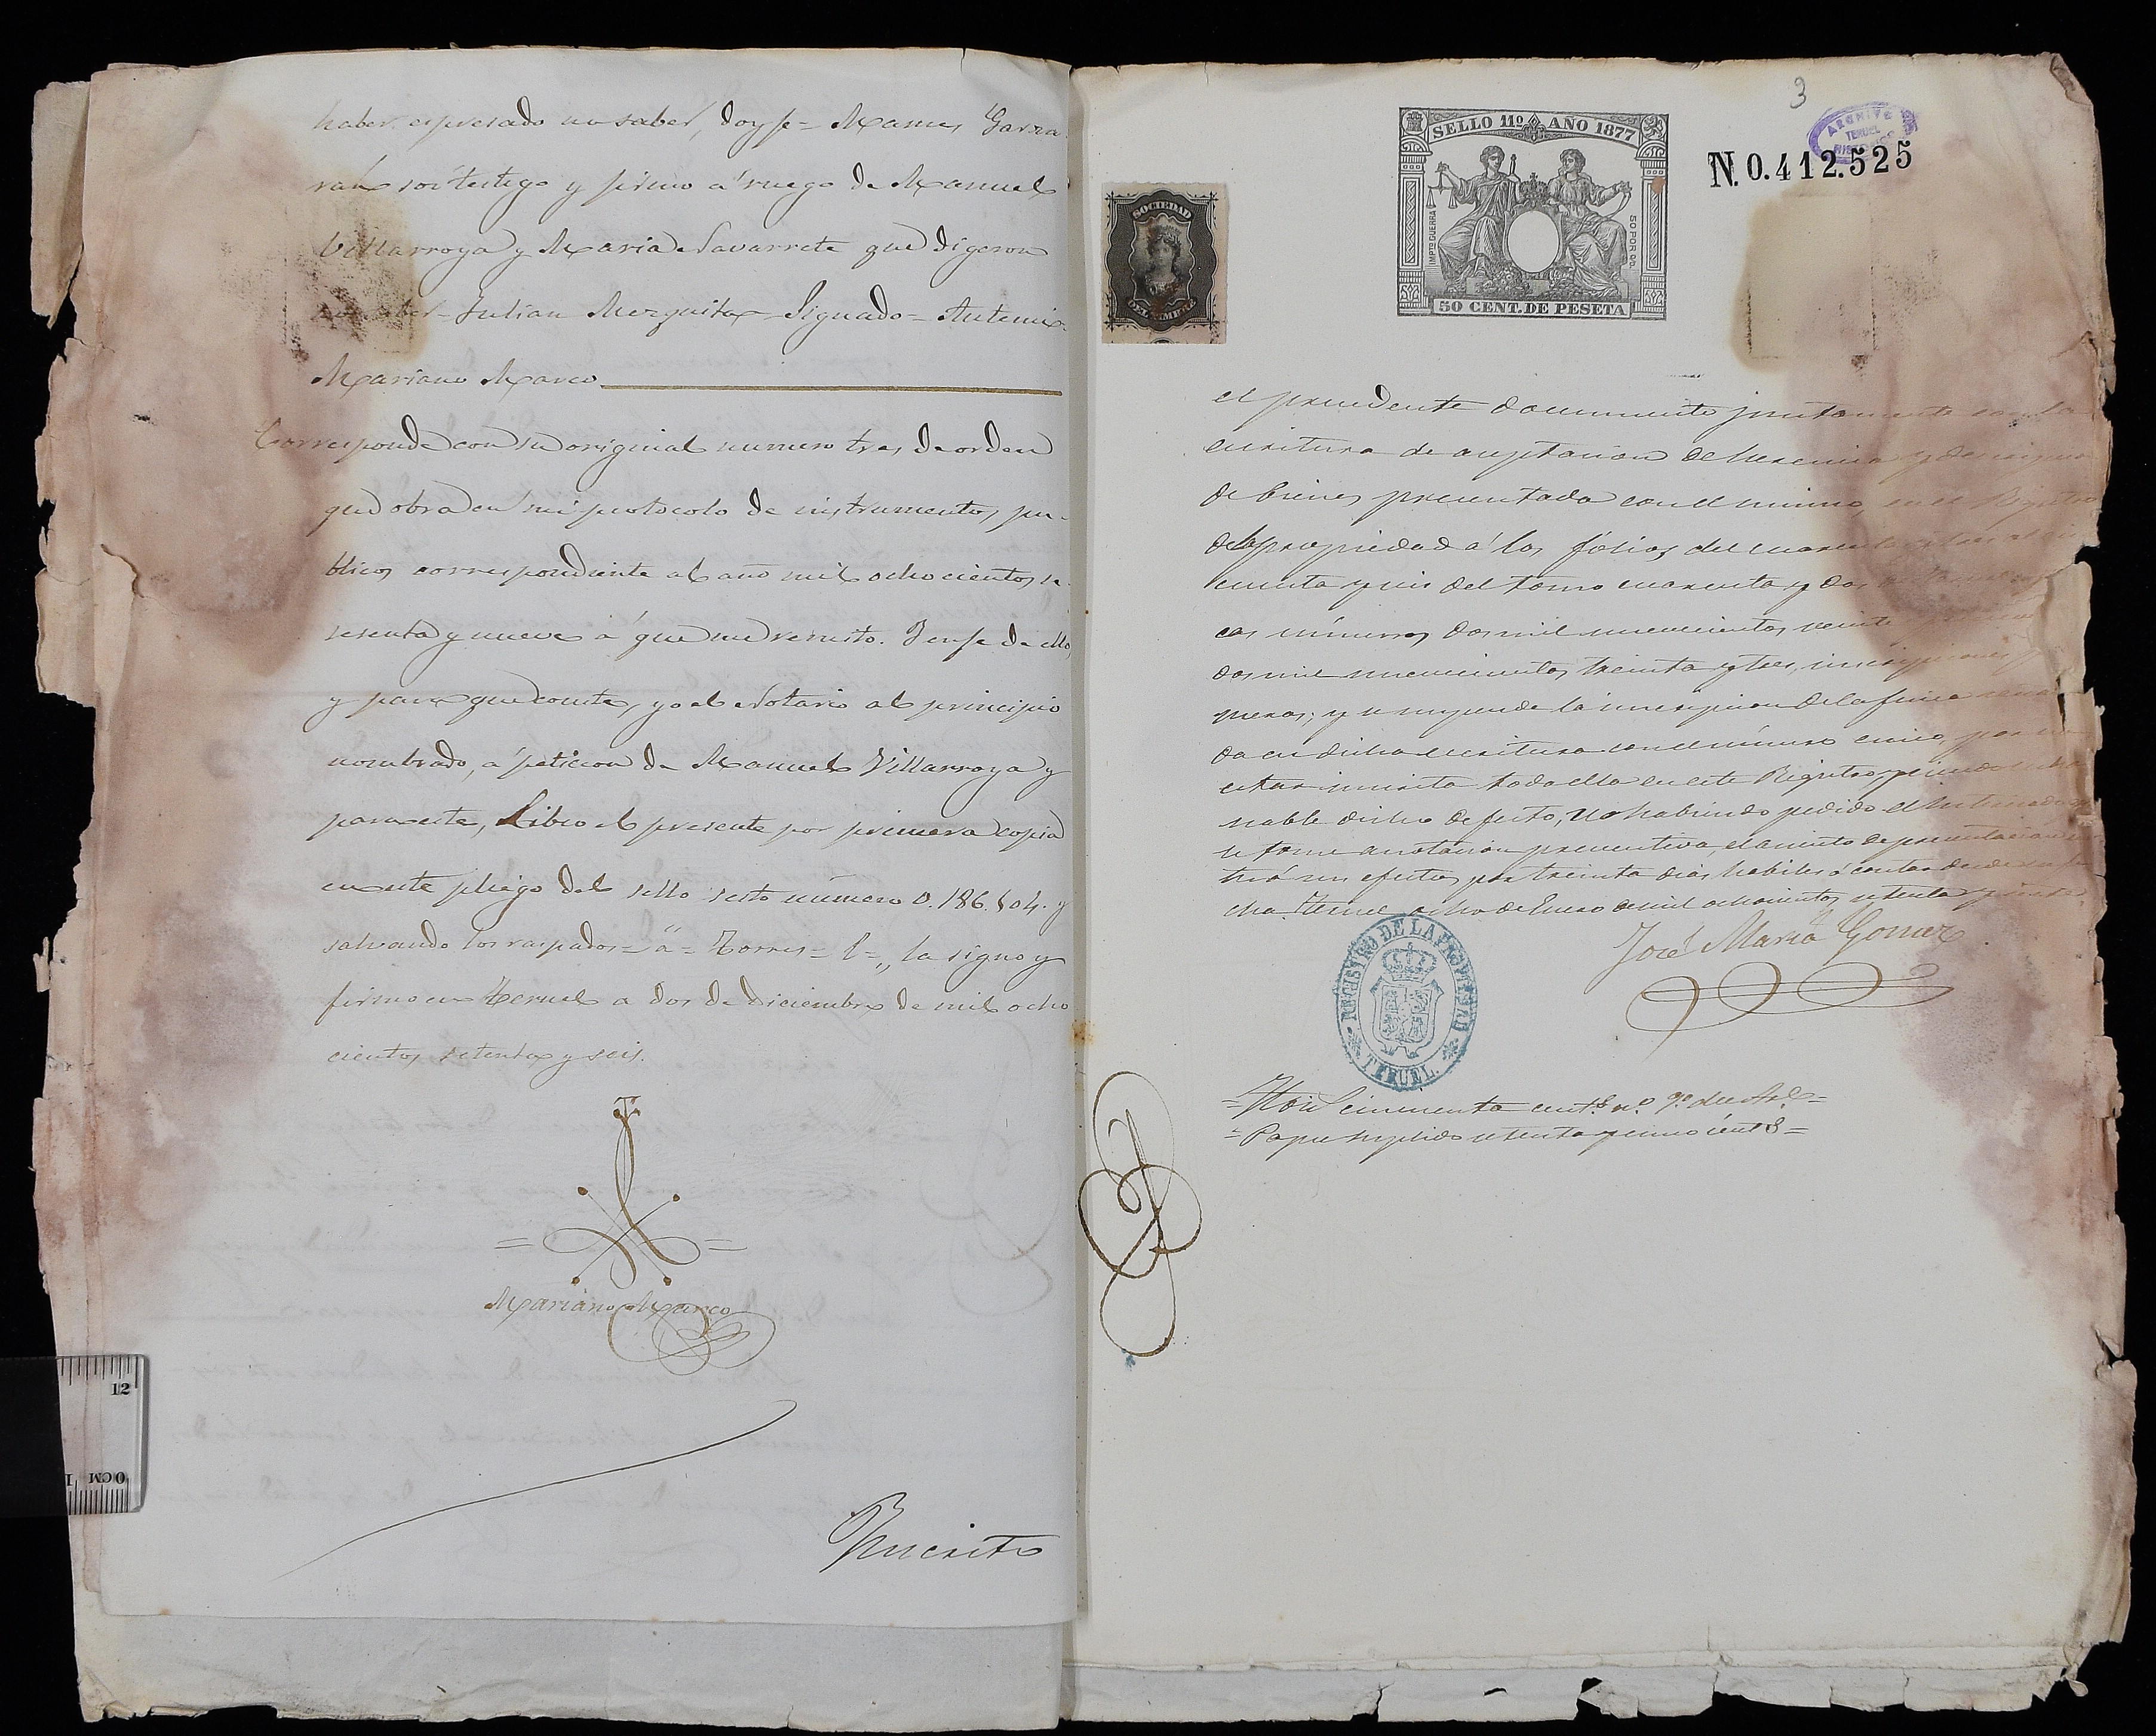 haber espresado no saber, doy fe = Mames Garza
ran = soi testigo y firmo a ruego de Manuel
Villarroya y Maria Navarrete que digeron
no saber = Julian Mezquita = Signado = Antemi =
Mariano Marco
Corresponde con su original numero tres de orden
que obra en mi protocolo de instrumentos pu-
blicos correspondiente al año mil ochocientos se-
sesenta y nueve a que me remito. Y en fe de ello,
y para que conste, yo el Notario al principio
nombrado, a peticion de Manuel Villarroya y
para este, Libro el presente por primera copia
en este pliego del sello sesto número 0.186.504. y
salvando los raspados = a = Torres = l = la signo y
firmo en Teruel a dos de Diciembre de mil ocho
cientos setenta y seis.
Mariano Marco
Inscrito
3
SELLO 11º AÑO 1877
IMPTO GUERRA
50 POR 0/0
50 CENT. DE PESETA
N. 0.412.525
ARCHIVO
TERUEL
HISTORICO
SOCIEDAD
DEL TIMBRE
el precedente documento juntamente con la
escritura de aceptacion de herencia y
de bienes presentada con el mismo, en el Registro
de la propiedad á los fólios del
cuenta y seis del tomo cuarenta y dos
cas números dos mil novecientos veinte
dos mil novecientos treinta y tres, inscripciones
meras; y se suspende la inscripcion de la finca
da en dicha escritura con el número cinco, por no
estar inscrita toda ella en este Registro, y siendo subsa
nable dicho defecto, no habiendo pedido el interesado
se tome anotacion preventiva, el asiento de presentacion
tirá sus efectos por treinta dias habiles á contar desde esta fe
cha. Teruel ocho de Enero de mil ochocientos setenta y siete.
José Maria Gomez
REGISTRO DE LA PROPIEDAD
TERUEL.
= Hon.s cincuenta cent.s n.º 9.º del Ar.l =
= Papel suplido setenta y cinco cent.s =
12
0CM 1